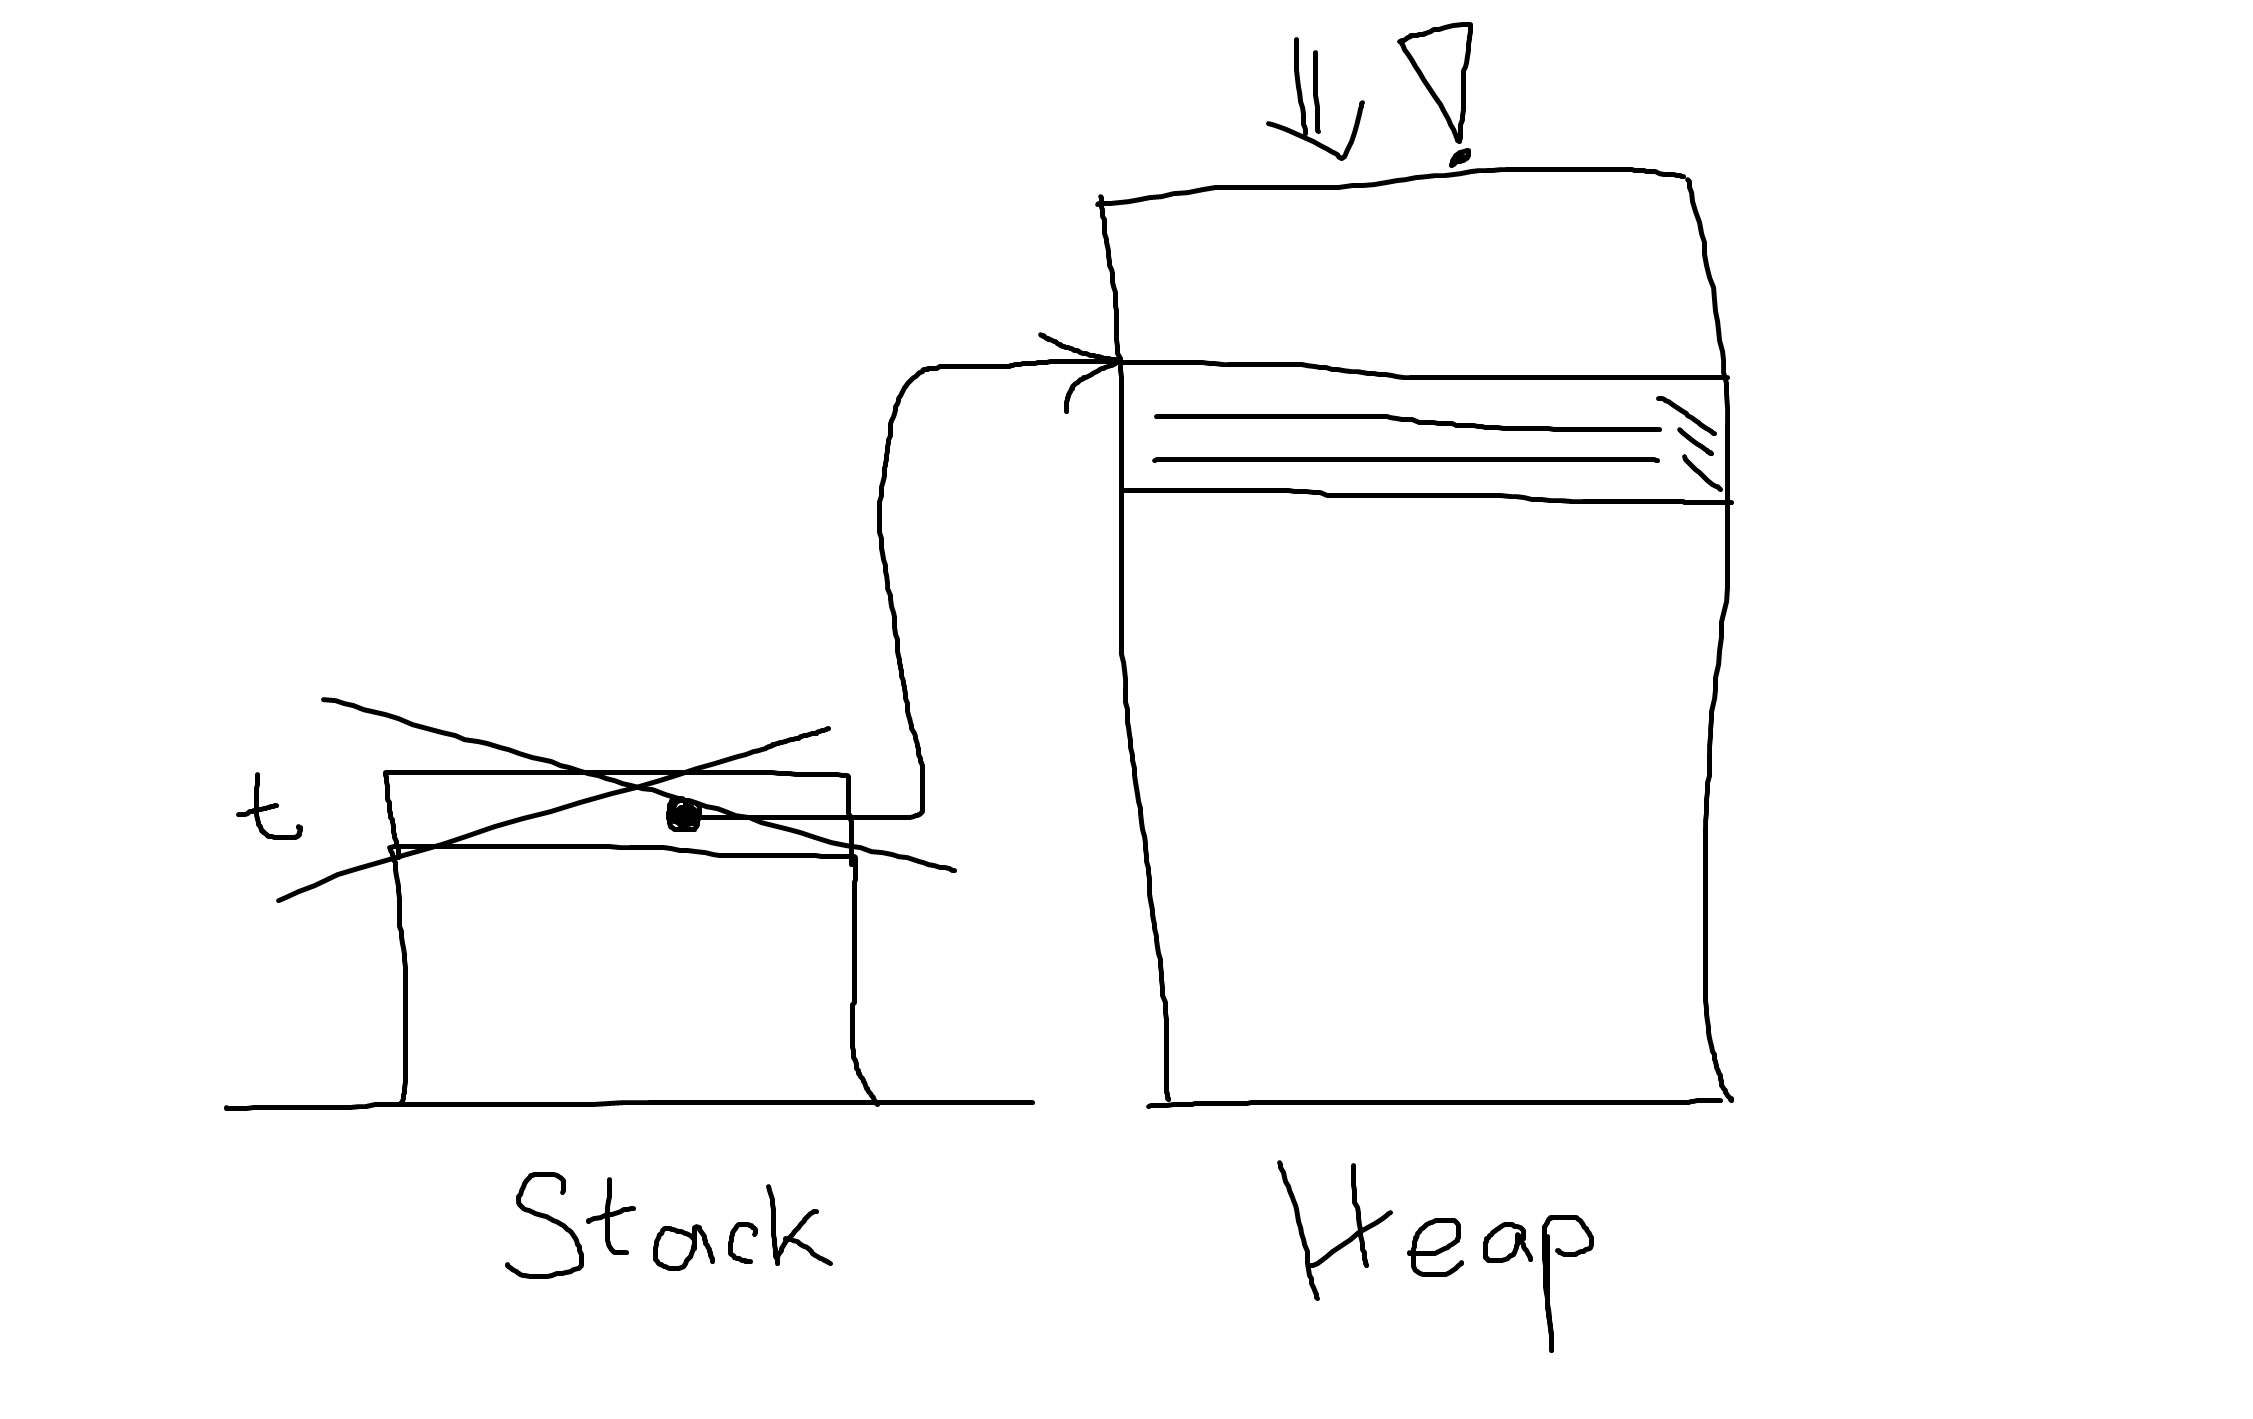 t
Stack
Heap